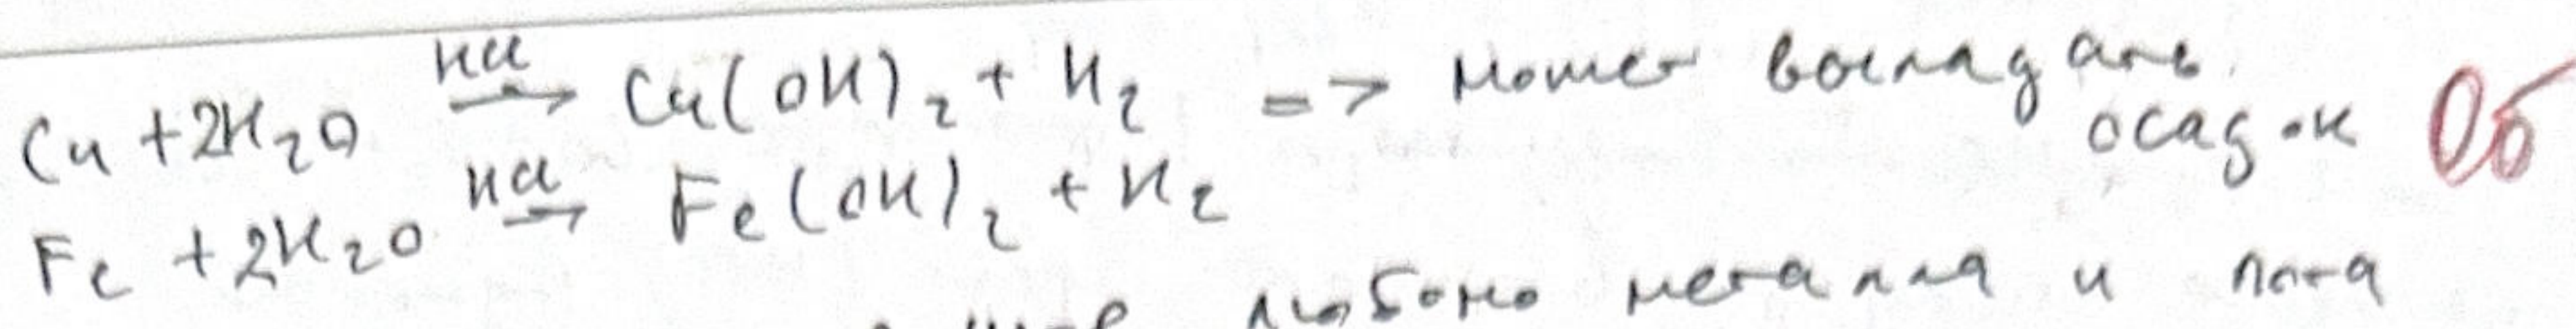 Cu + 2H₂O →(HCl) Cu(OH)₂ + H₂ => может выпадать
осадок 0б
Fe + 2H₂O →(HCl) Fe(OH)₂ + H₂
любого металла и пота